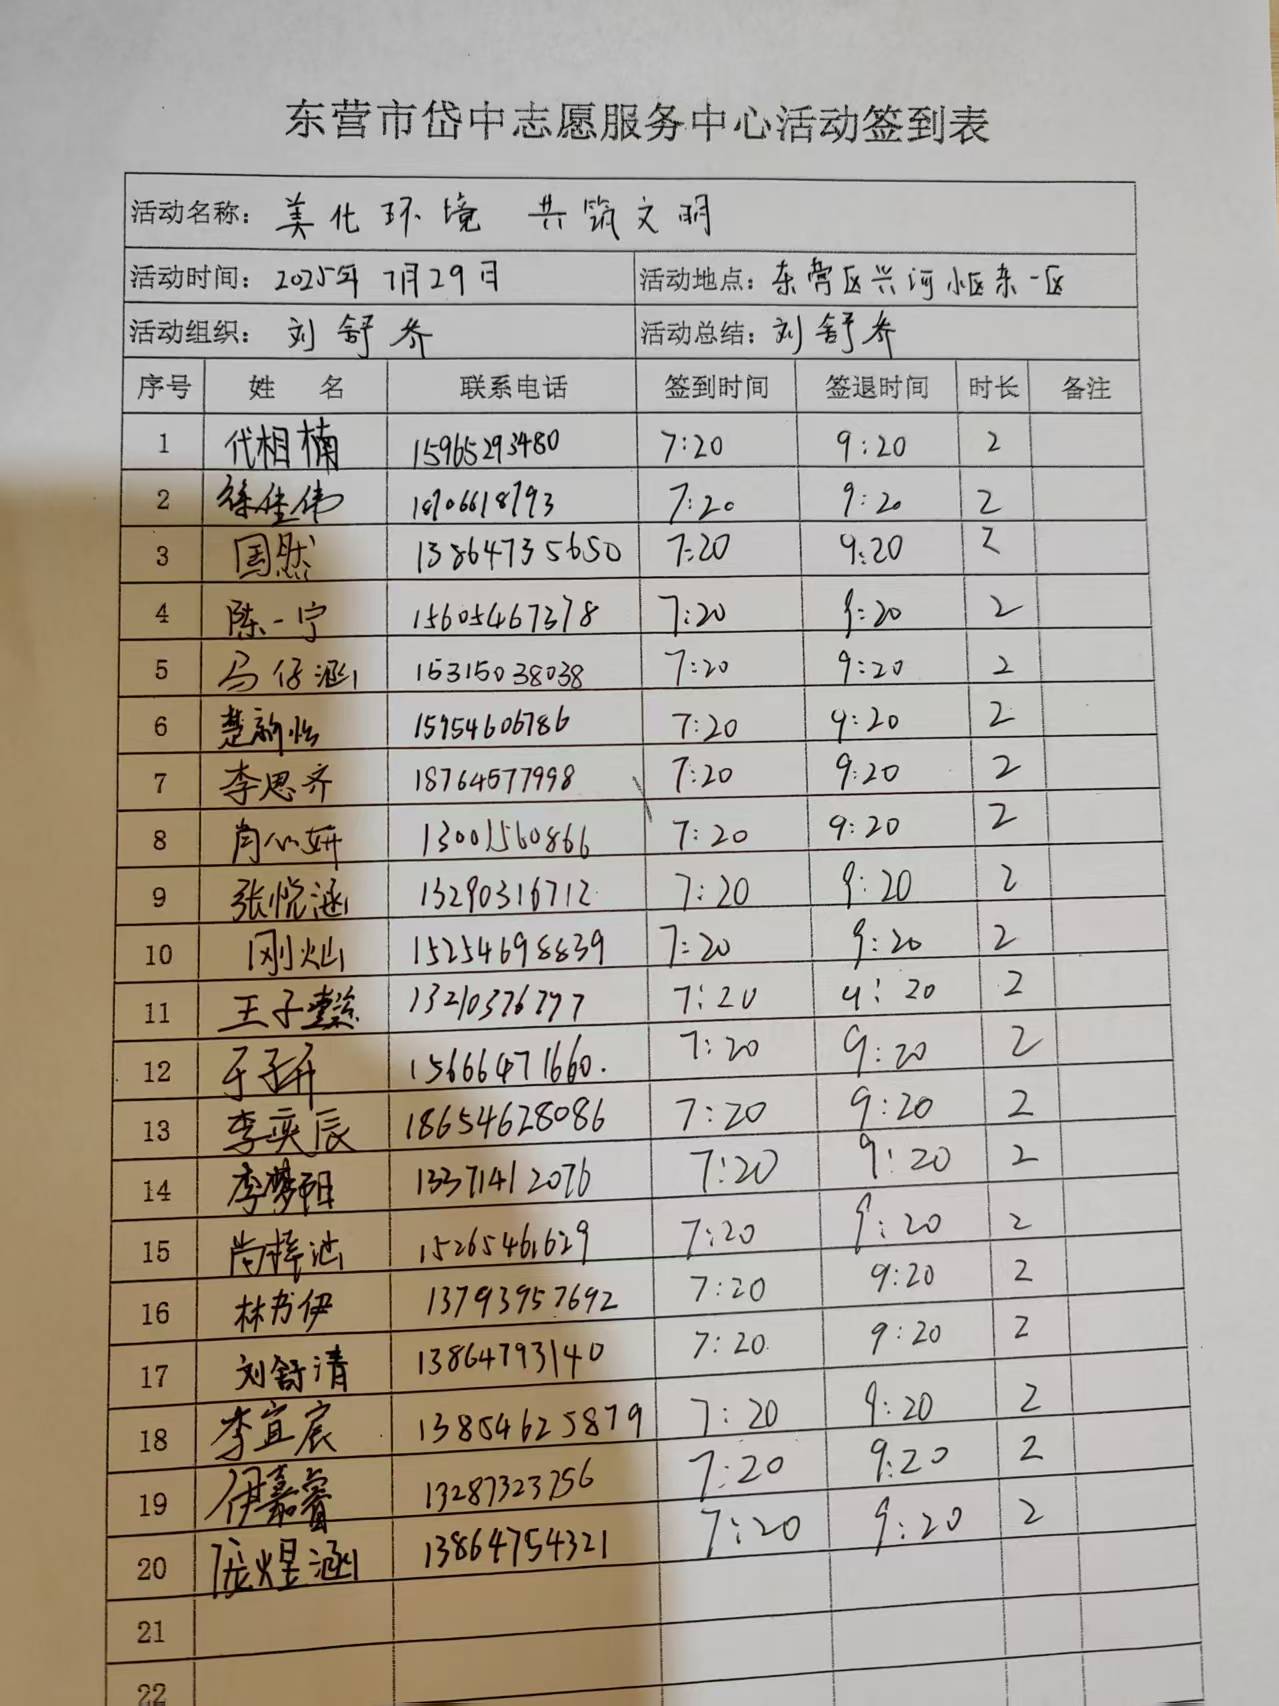 东营市岱中志愿服务中心活动签到表
活动名称：美化环境 共筑文明
活动时间：2025年7月29日 活动地点：东营区兴河小区东一区
活动组织：刘舒乔 活动总结：刘舒乔
序号 姓 名 联系电话 签到时间 签退时间 时长 备注
1 代相楠 15965293480 7:20 9:20 2
2 徐佳伟 7:20 9:20 2
3 国然 13864735650 7:20 9:20 2
4 陈一宁 15605467378 7:20 9:20 2
5 马仔涵 15315038038 7:20 9:20 2
6 楚新怡 15954606786 7:20 9:20 2
7 李思齐 18764577998 7:20 9:20 2
8 肖心妍 13001560866 7:20 9:20 2
9 张悦涵 13290316712 7:20 9:20 2
10 刚灿 15254698839 7:20 9:20 2
11 王子懿 7:20 9:20 2
12 于子开 15666471660. 7:20 9:20 2
13 李奕辰 18654628086 7:20 9:20 2
14 李梦阳 13371412076 7:20 9:20 2
15 尚梓涵 15265461629 7:20 9:20 2
16 林书伊 13793957692 7:20 9:20 2
17 刘舒清 13864793140 7:20 9:20 2
18 李宜宸 13854625879 7:20 9:20 2
19 伊嘉睿 13287323756 7:20 9:20 2
20 庞煜涵 13864754321 7:20 9:20 2
21
22